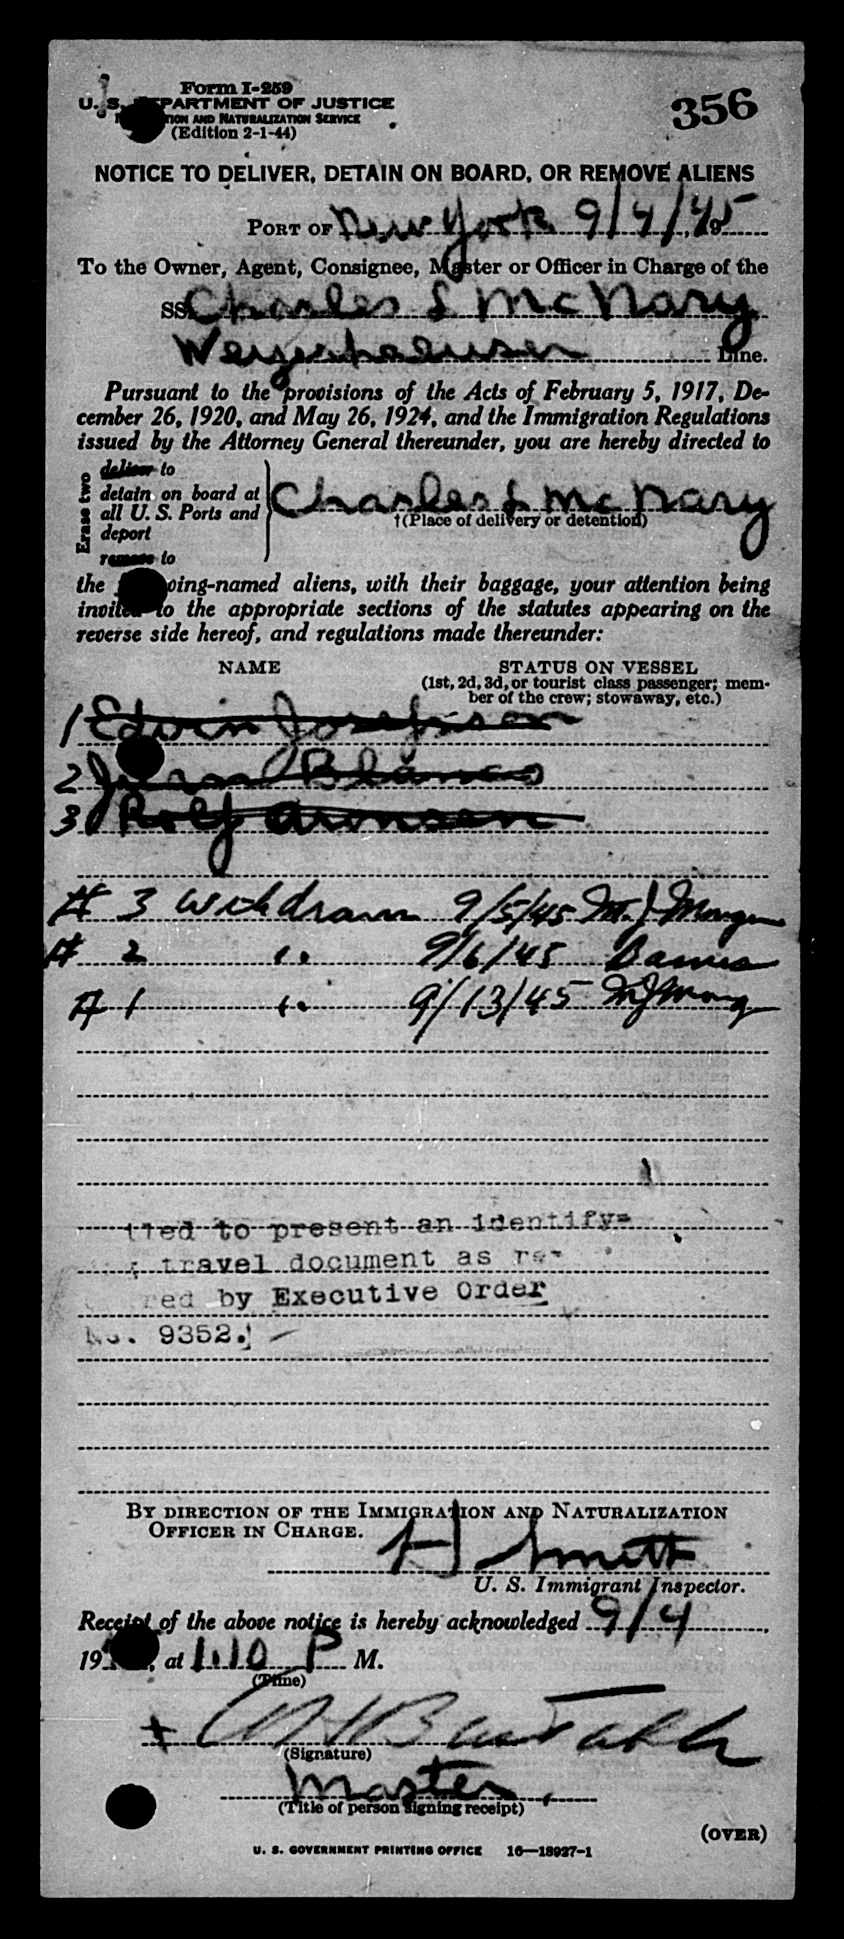 Form I-259
U. S. DEPARTMENT OF JUSTICE
TION AND NATURALIZATION SERVICE
(Edition 2-1-44)
356
NOTICE TO DELIVER, DETAIN ON BOARD, OR REMOVE ALIENS
PORT OF New York 9/4/45, 19
To the Owner, Agent, Consignee, Master or Officer in Charge of the
SS. Charles L McNary
Weyerhaeuser Line.
Pursuant to the provisions of the Acts of February 5, 1917, De-
cember 26, 1920, and May 26, 1924, and the Immigration Regulations
issued by the Attorney General thereunder, you are hereby directed to
Erase two
deliver to
detain on board at
all U. S. Ports and
deport
remove to
Charles L McNary
†(Place of delivery or detention)
the oing-named aliens, with their baggage, your attention being
invited to the appropriate sections of the statutes appearing on the
reverse side hereof, and regulations made thereunder:
NAME STATUS ON VESSEL
(1st, 2d, 3d, or tourist class passenger; mem-
ber of the crew; stowaway, etc.)
1 Edwin Josephson
2 Blanco
3 Rolf Aronsen
# 3 withdrawn 9/5/45 M. J. Morgan
# 2 " 9/6/45
# 1 " 9/13/45 MJ Morg
to present an identify-
travel document as re-
red by Executive Order
No. 9352.
BY DIRECTION OF THE IMMIGRATION AND NATURALIZATION
OFFICER IN CHARGE.
H Smith
U. S. Immigrant Inspector.
Receipt of the above notice is hereby acknowledged 9/4,
19, at 1.10 P M.
(Time)
(Signature)
Master
(Title of person signing receipt)
(OVER)
U. S. GOVERNMENT PRINTING OFFICE 16—18927-1